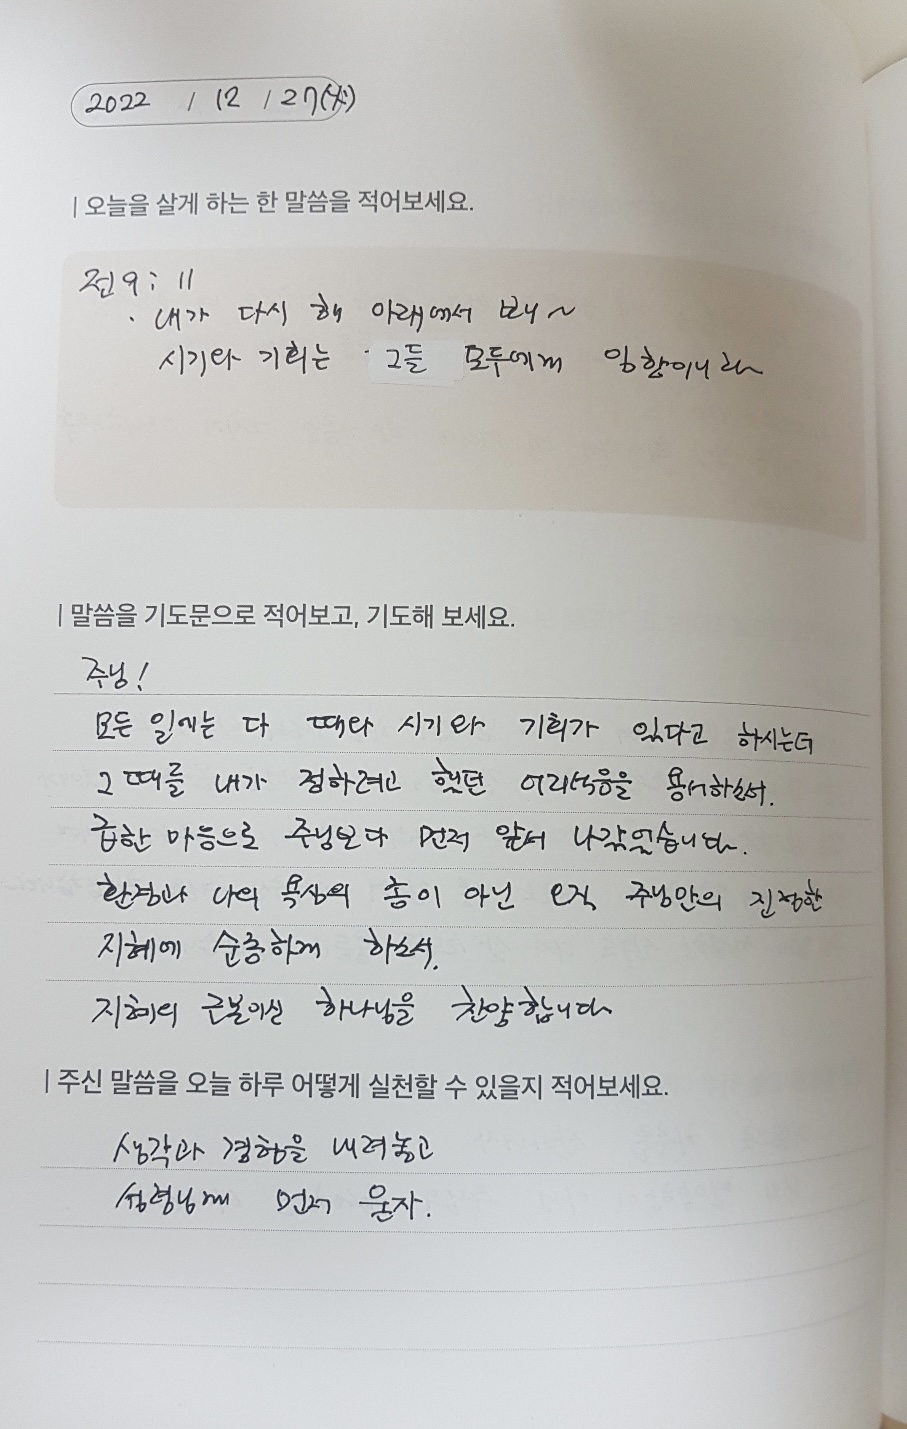 2022 / 12 / 27(火)
| 오늘을 살게 하는 한 말씀을 적어보세요.
전 9 : 11
· 내가 다시 해 아래에서 보니 ~
시기와 기회는 그들 모두에게 임함이니라
| 말씀을 기도문으로 적어보고, 기도해 보세요.
주님!
모든 일에는 다 때와 시기와 기회가 있다고 하시는데
그 때를 내가 정하려고 했던 어리석음을 용서하소서.
급한 마음으로 주님보다 먼저 앞서 나갔었습니다.
환경과 나의 욕심의 종이 아닌 오직 주님만의 진정한
지혜에 순종하게 하소서.
지혜의 근본이신 하나님을 찬양합니다
| 주신 말씀을 오늘 하루 어떻게 실천할 수 있을지 적어보세요.
생각과 경험을 내려놓고
성령님께 먼저 묻자.